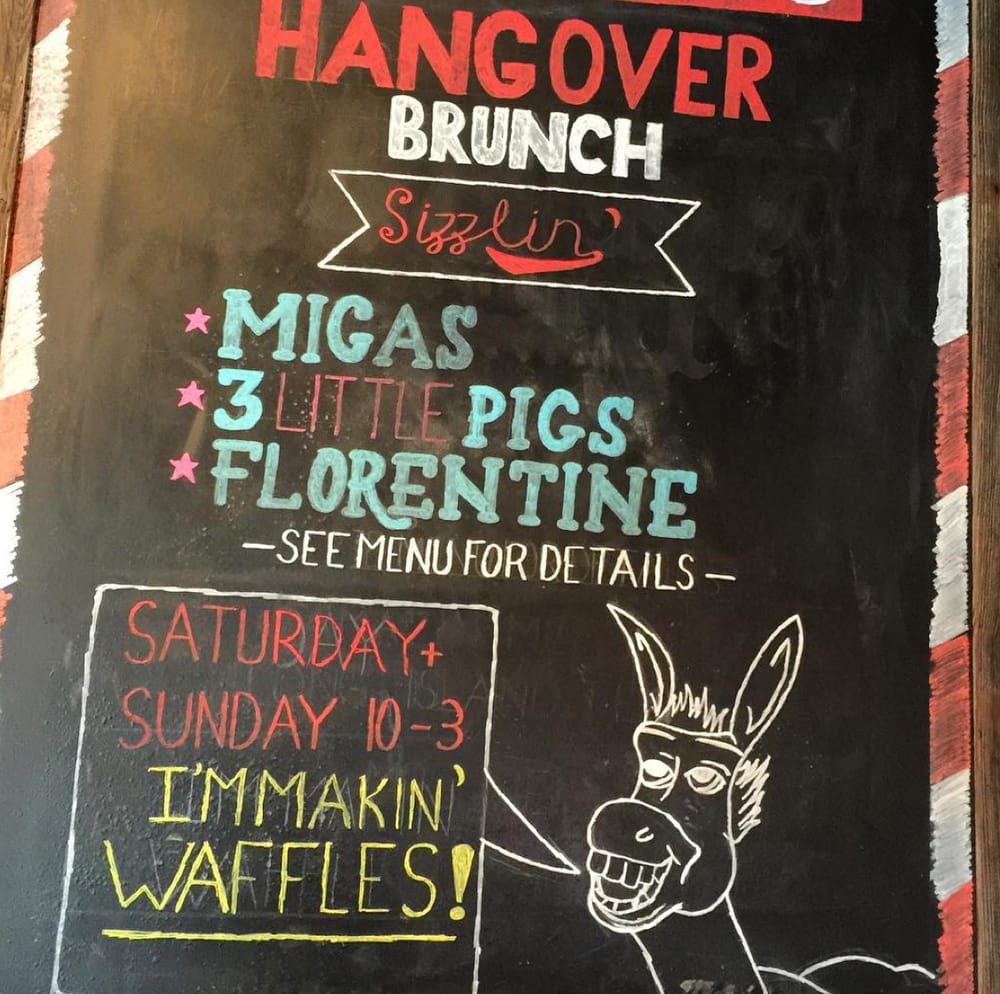 HANGOVER
BRUNCH
Sizzlin'
MIGAS
3 LITTLE PIGS
FLORENTINE
-SEE MENU FOR DETAILS-
SATURDAY+
SUNDAY 10-3
I'M MAKIN'
WAFFLES!